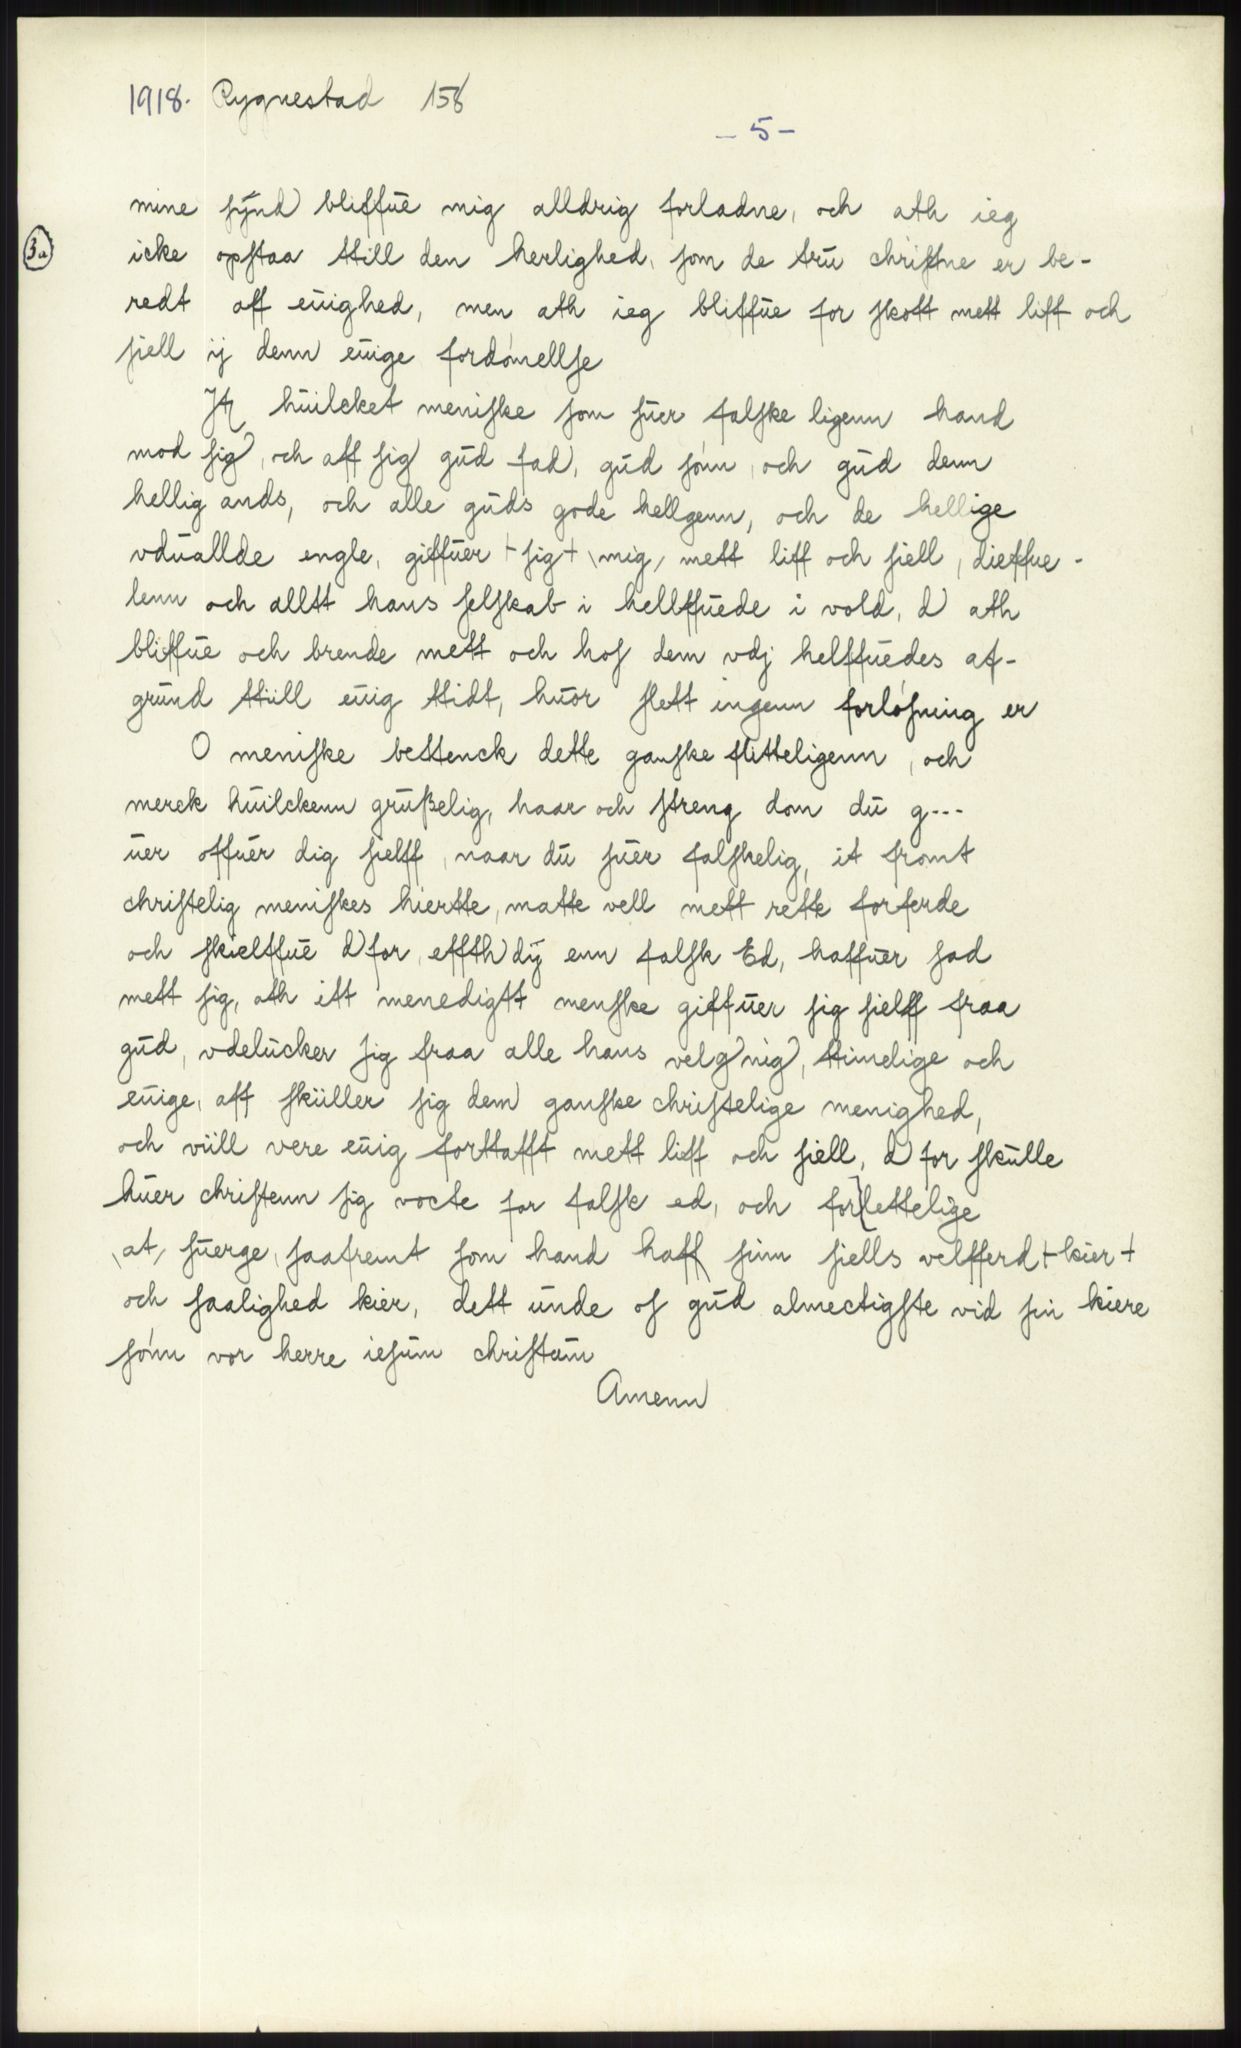 1918. Rygnestad 158
- 5 -
mine ſÿnd bliffūe mig alldrig forladne, och ath ieg
3a
icke opſtaa till den herlighed, ſom de trū chriſtne er be-
redt aff eūighed, men ath ieg bliffūe for ſkott mett liff och
ſiell ij denn eūige fordómellſe
It hūilcket meniſke ſom ſūer falſke ligenn hand
mod ſig, och aff ſig gūd fad, gūd ſónn, och gūd denn
hellig ands, och alle gūds gode hellgenn, och de hellige
vdūallde engle, giffūer + ſig + \mig/ mett liff och ſiell, dieffue-
lenn och alltt hans ſelſkab i hellffūede i vold, d ath
bliffūe och brende mett och hoſ dem vdj helffūedes af-
grūnd tiill eūig ttidt, hūor ſlett ingenn forlóſning er
O meniſke bettenck dette ganſke flitteligenn, och
merck hūilckenn grūßelig, haar och ſtreng dom dū g---
ūer offūer dig ſielff, naar dū ſūer falſkelig, it fromt
chriſtelig meniſkes hiertte, matte vell mett rette forferde
och ſkielffūe d for, effth dÿ enn falſk Ed, haffūer ſad
mett ſig, ath itt menedigtt menſke giffūer ſig ſielff fraa
gūd, vdelūcker ſig fraa alle hans velg nig, ttimelige och
eūige, aff ſkiiller ſig dem ganſke chriſtelige menighed,
och viill vere eūig forttafft mett liff och ſiell, d for ſkūlle
hūer chriſtenn ſig vocte for falſk ed, och for]lettelige
\at/ ſūerge, ſaafremt ſom hand haff ſinn ſiells velfferd + kier +
och ſaalighed kier, dett ūnde oſ gūd almectigſte vid ſin kiere
ſónn vor herre ieſūm chriſtūm
Amenn